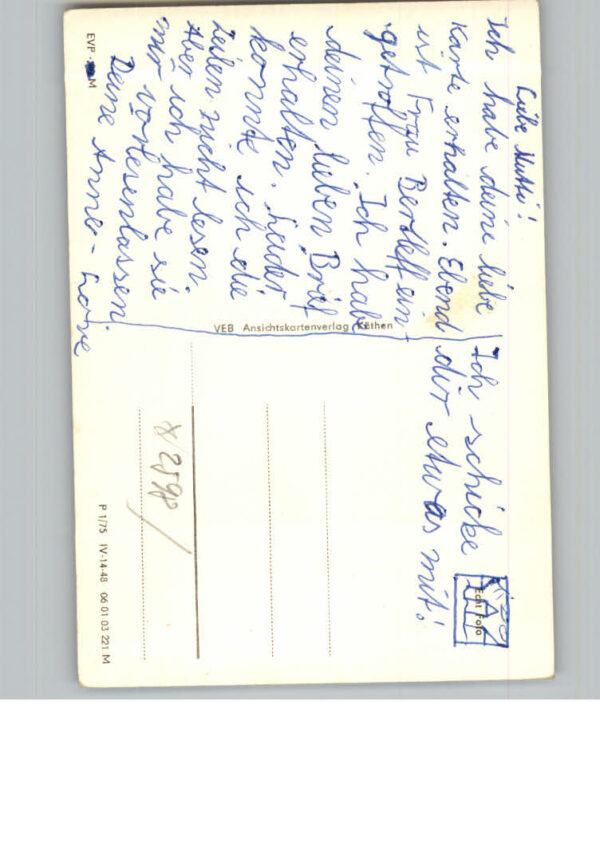 Liebe Mutti!
Ich habe deine liebe
Karte erhalten. Ebend
ist Frau Bertleff ein-
getroffen. Ich habe
deinen lieben Brief
erhalten. Leider
konnte ich die
Zeilen nicht lesen.
Aber ich habe sie
mir vorlesenlassen.
Deine Anne-Lore
Ich schicke
dir etwas mit!
EVP M
VEB Ansichtskartenverlag Köthen
Echt Foto
X 2598/
P 1/75 IV-14-48 06 01 03 221 M